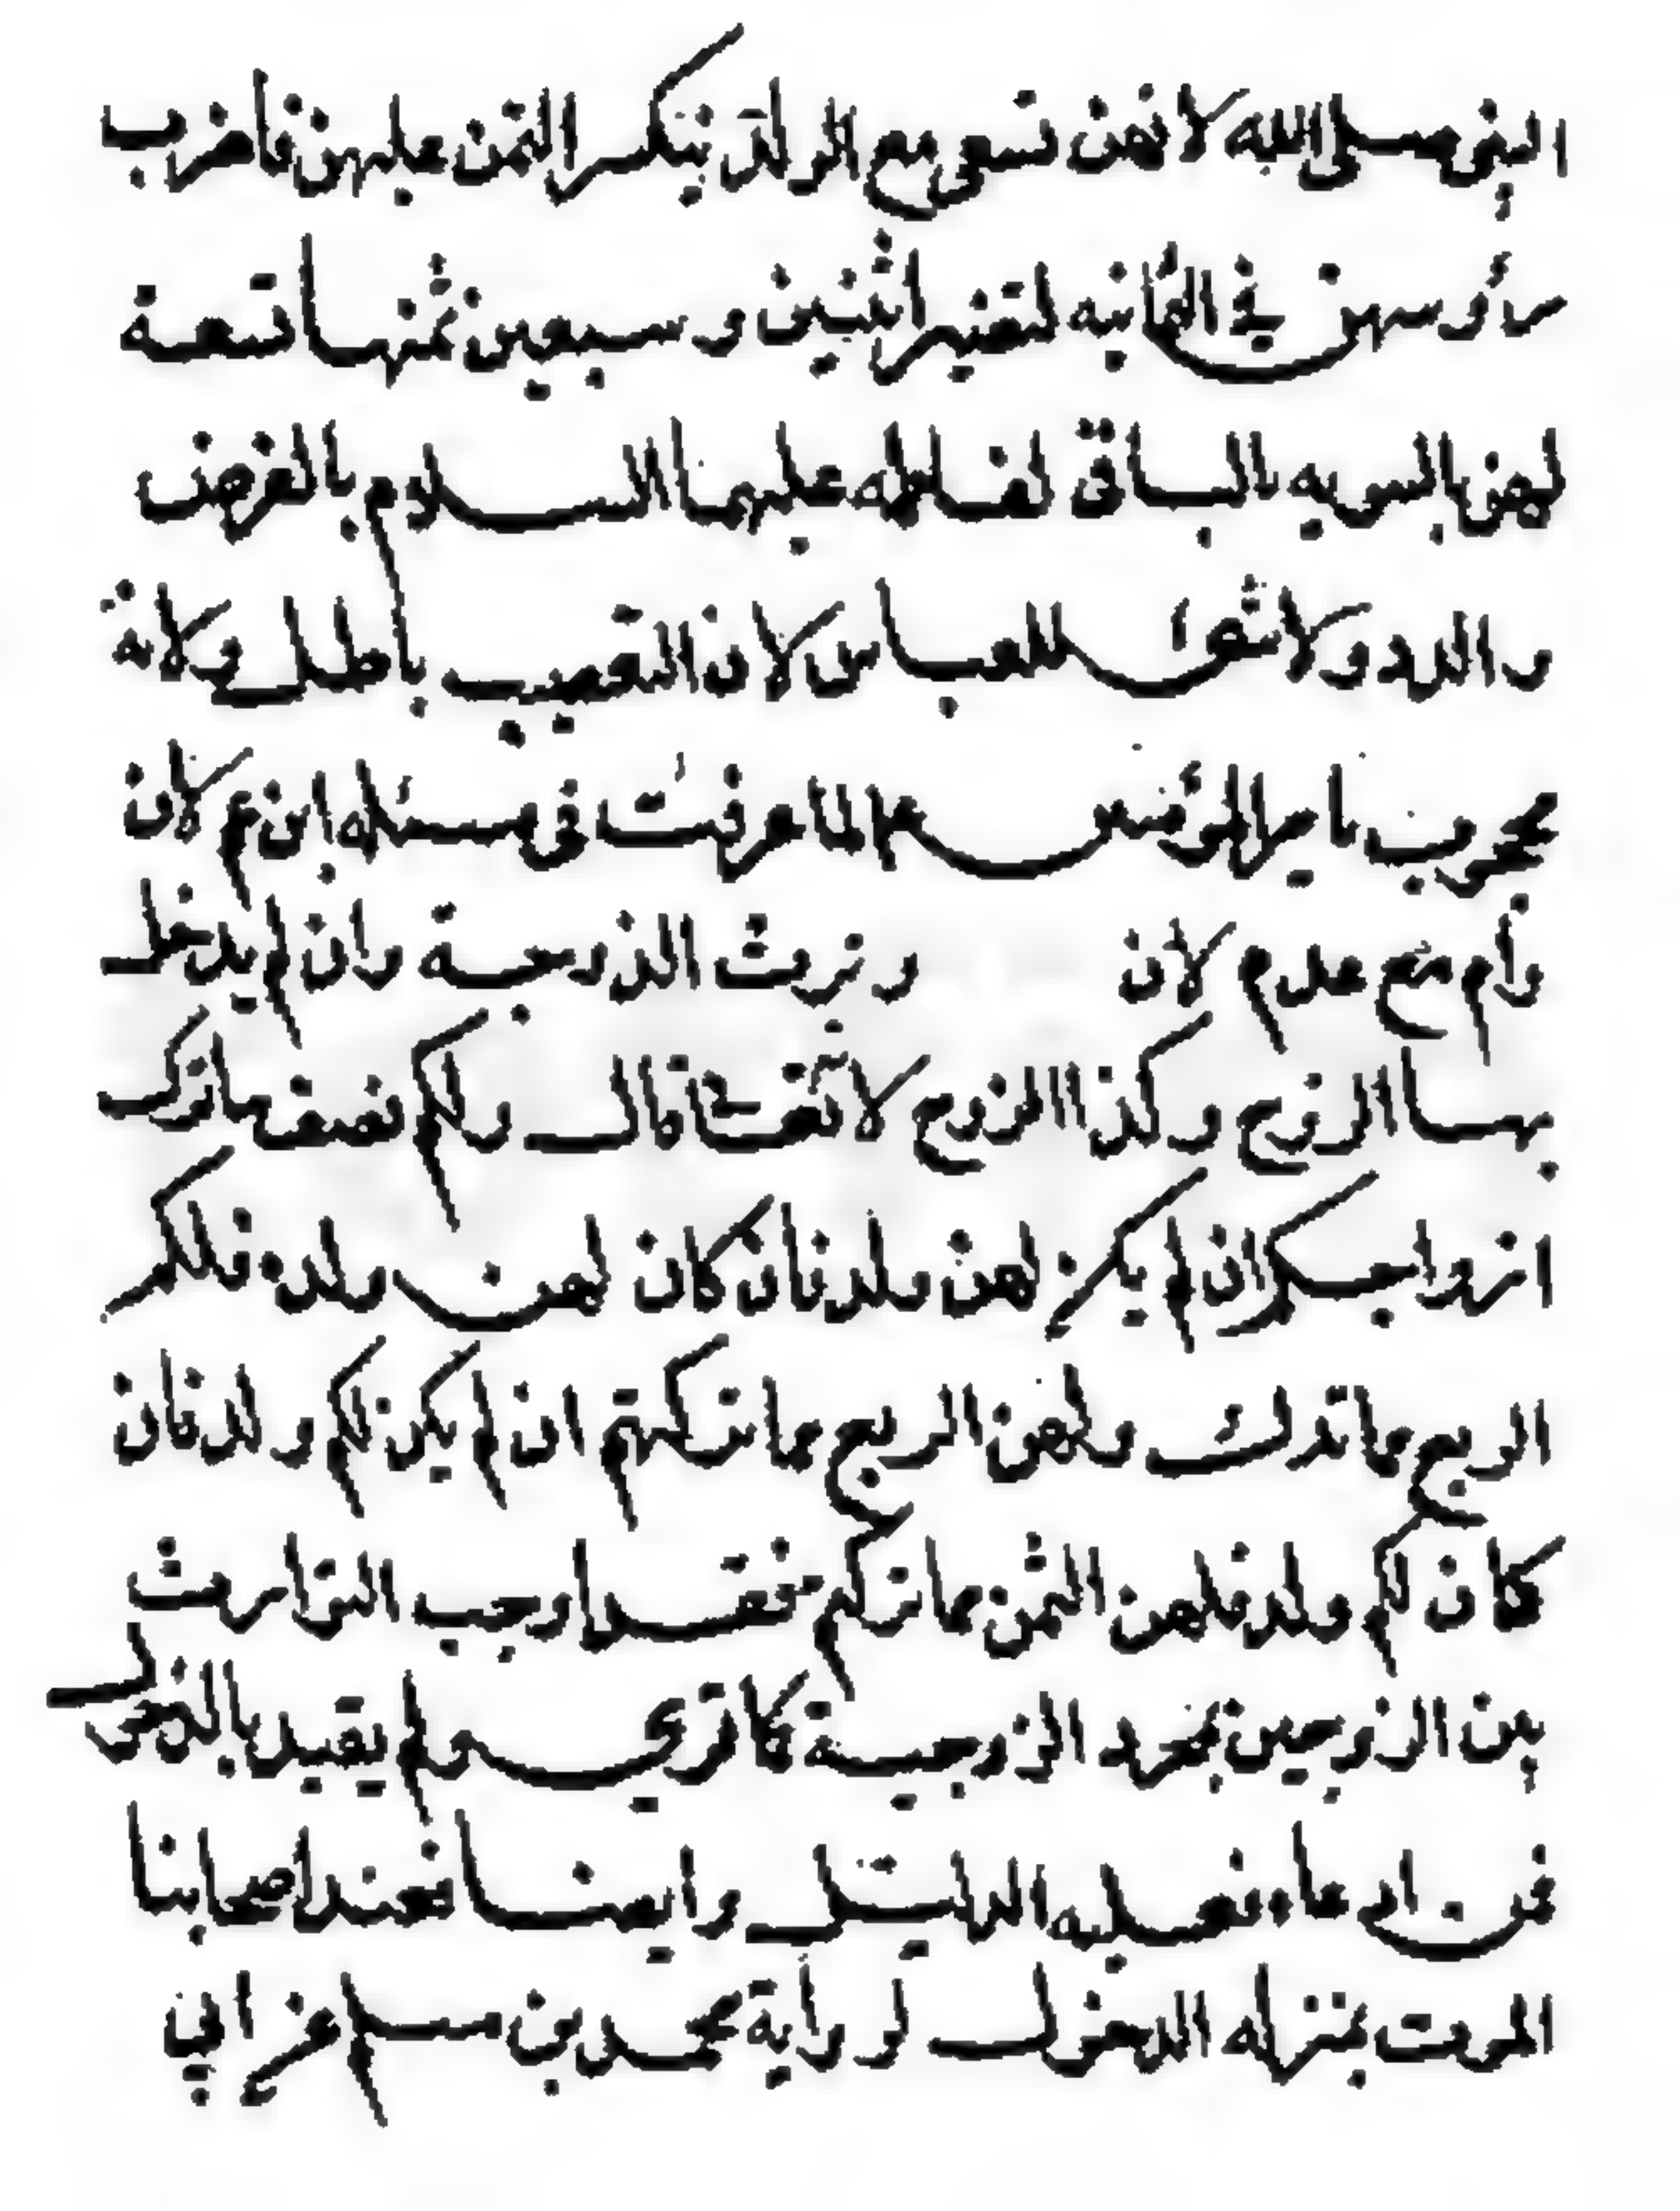 النبي صلى الله لانهن تسع مع الولد ينكسر الثمن عليهن فاضرب
رؤوسهن في الثمانيه لتصير اثنين و سبعين ثمنها تسعة
لهن بالسويه والباقي لفاطمه عليهما السلام بالفرض
والرد ولا شئ للعباس لان التعصيب باطل ولانه
محجوب بامير المؤمنين ع لما عرفت في مسئله ابن عم لاب
وام مع عم لاب و ترث الزوجة وان لم يدخل
بها الزوج وكذا الزوج لانه تعالى قال ولكم نصف ما ترك
ازواجكم ان لم يكن لهن ولد فان كان لهن ولد فلكم
الربع مما ترك ولهن الربع مما تركتم ان لم يكن لكم ولد فان
كان لكم ولد فلهن الثمن مما تركتم فقد اوجب التوارث
بين الزوجين بمجرد الزوجية كما ترى ولم يقيد بالدخول
فمن ادعاه فعليه الدليل وايضا فعند اصحابنا
الموت بمنزله الدخول لرواية محمد بن مسلم عن ابي